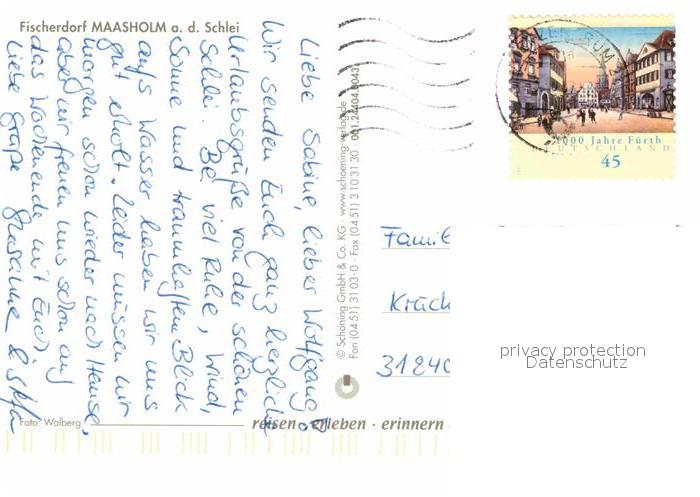 Fischerdorf MAASHOLM a. d. Schlei
Liebe Sabine, lieber Wolfgang,
Wir senden Euch ganz herzliche
Urlaubsgrüße von der schönen
Schlei. Bei viel Ruhe, Wind,
Sonne und traumhaften Blick
aufs Wasser haben wir uns
gut erholt. Leider müssen wir
morgen schon wieder nach Hause,
aber wir freuen uns schon auf
das Wochenende mit Euch.
Liebe Grüße Susanne &
© Schöning GmbH & Co. KG · www.schoening-verlag.de
Fon (04 51) 31 03-0 · Fax (04 51) 3 10 31 30
Foto: Walberg
reisen · erleben · erinnern
1000 Jahre Fürth
DEUTSCHLAND
45
Famil
Krück
31840
privacy protection
Datenschutz